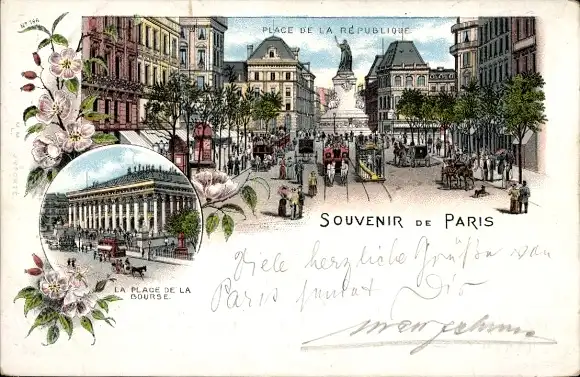 No 146
PLACE DE LA RÉPUBLIQUE
SOUVENIR DE PARIS
LA PLACE DE LA
BOURSE.
Viele herzliche Grüße von
Paris sendet Dir